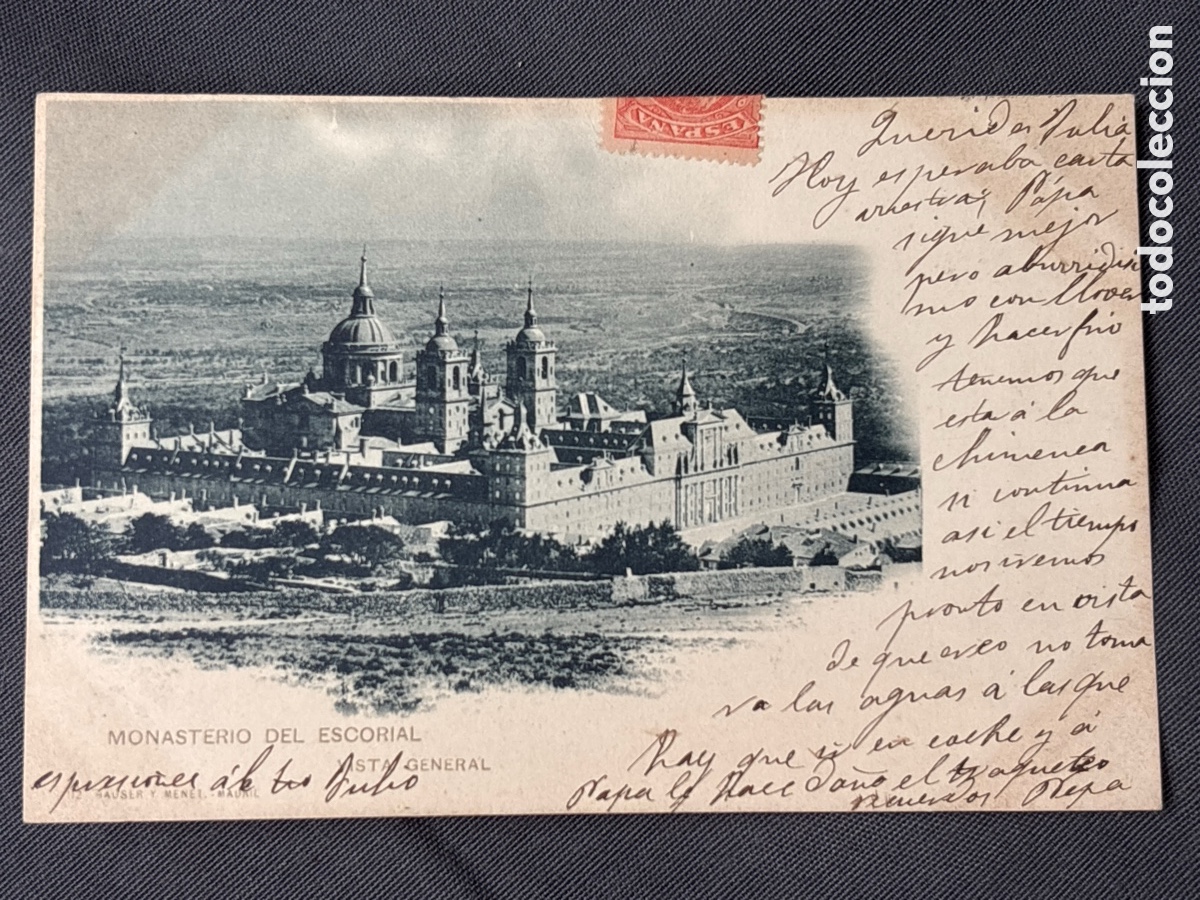 ESPAÑA
Querides Julia
Hoy esperaba carta
vuestra; Pápa
sigue mejor
pero aburridisi
mo con llover
y hacer frio
tenemos que
esta á la
chimenea
si continua
asi el tiempo
nos iremos
pronto en vista
de que creo no toma
va las aguas á las que
hay que ir en coche y á
Papa le hace daño el traqueteo
recuerdos Pepa
MONASTERIO DEL ESCORIAL
VISTA GENERAL
espresiones á tio Julio
HAUSER Y MENET.- MADRID
todocoleccion